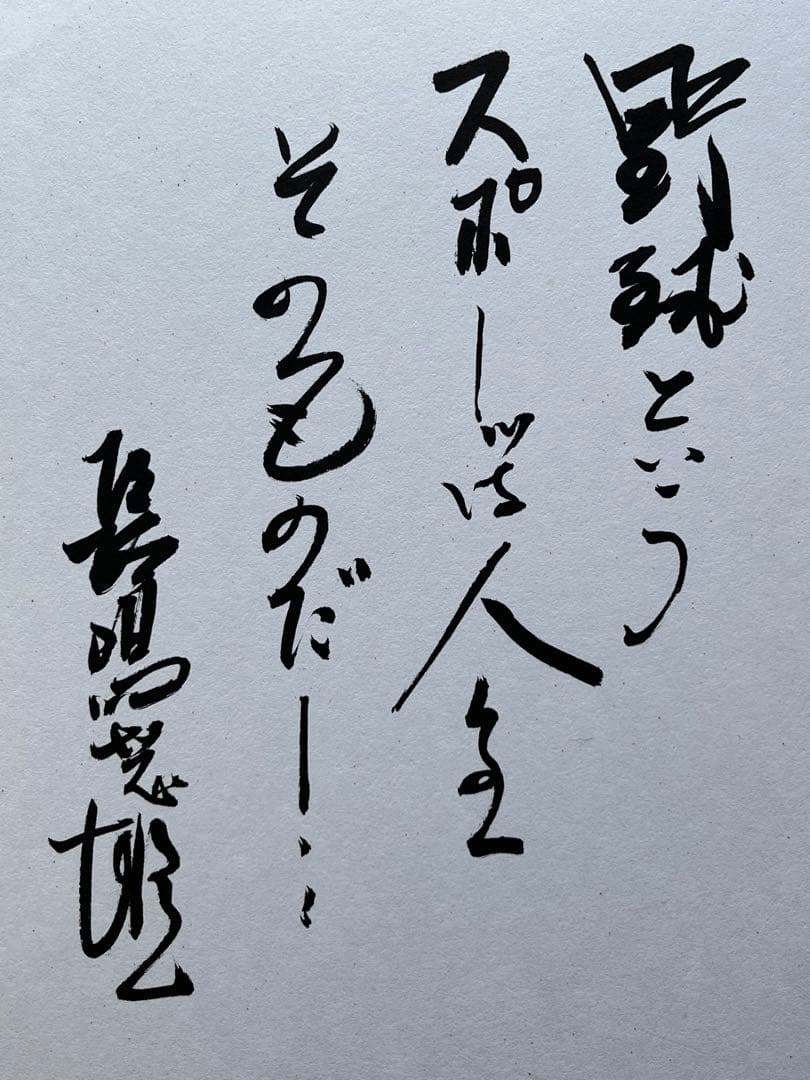 野球という
スポーツは人生
そのものだー…
長嶋茂雄